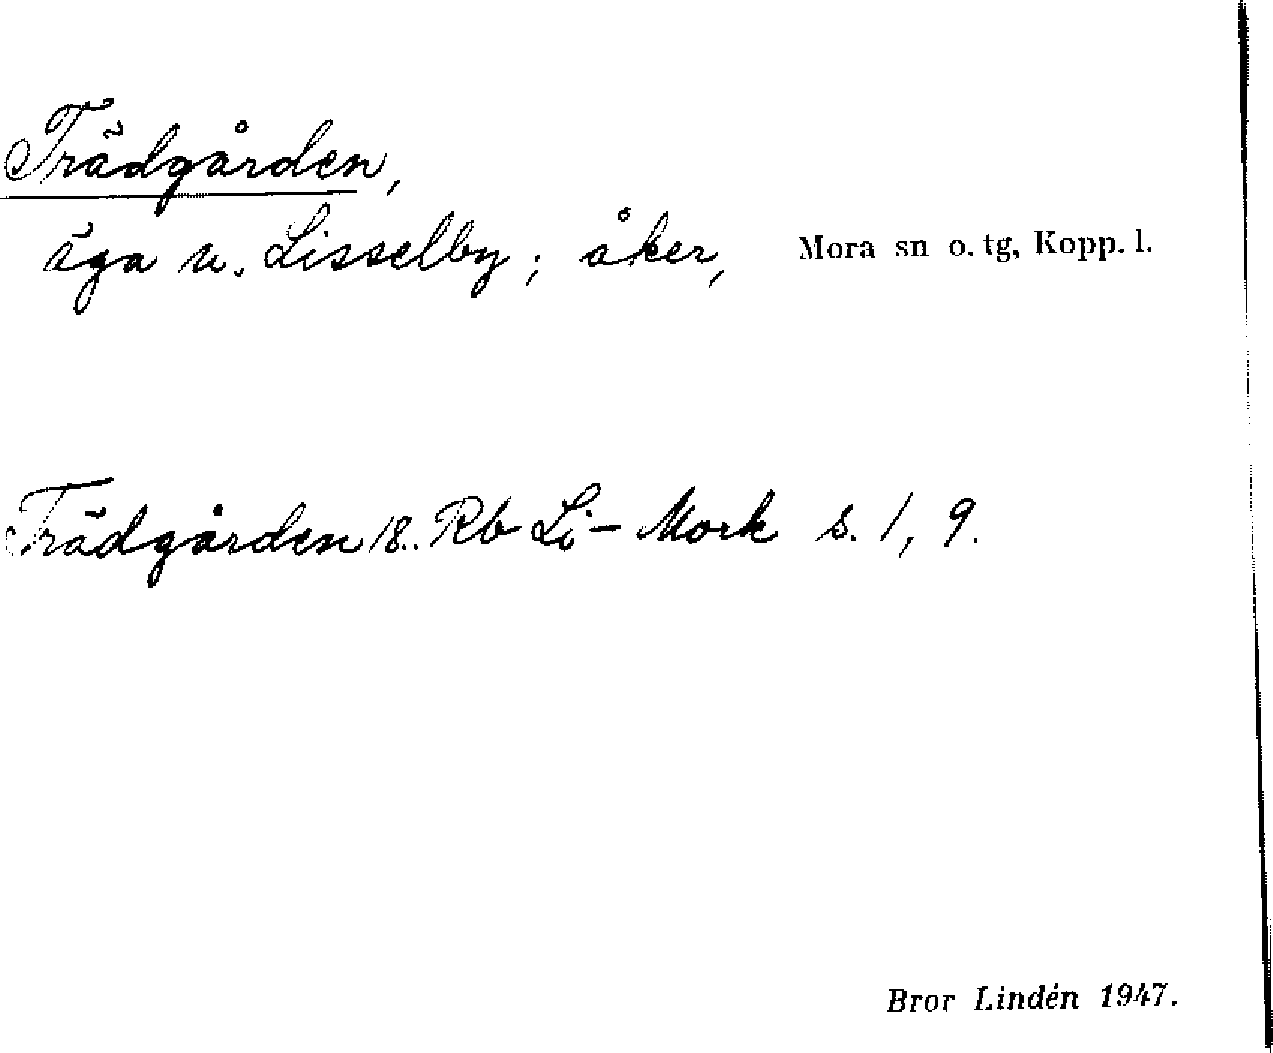 Trädgården,
äga u. Lisselby; åker, Mora sn o. tg, Kopp. l.
Trädgården 18.. Rb Li-Mork s. 1, 9.
Bror Lindén 1947.